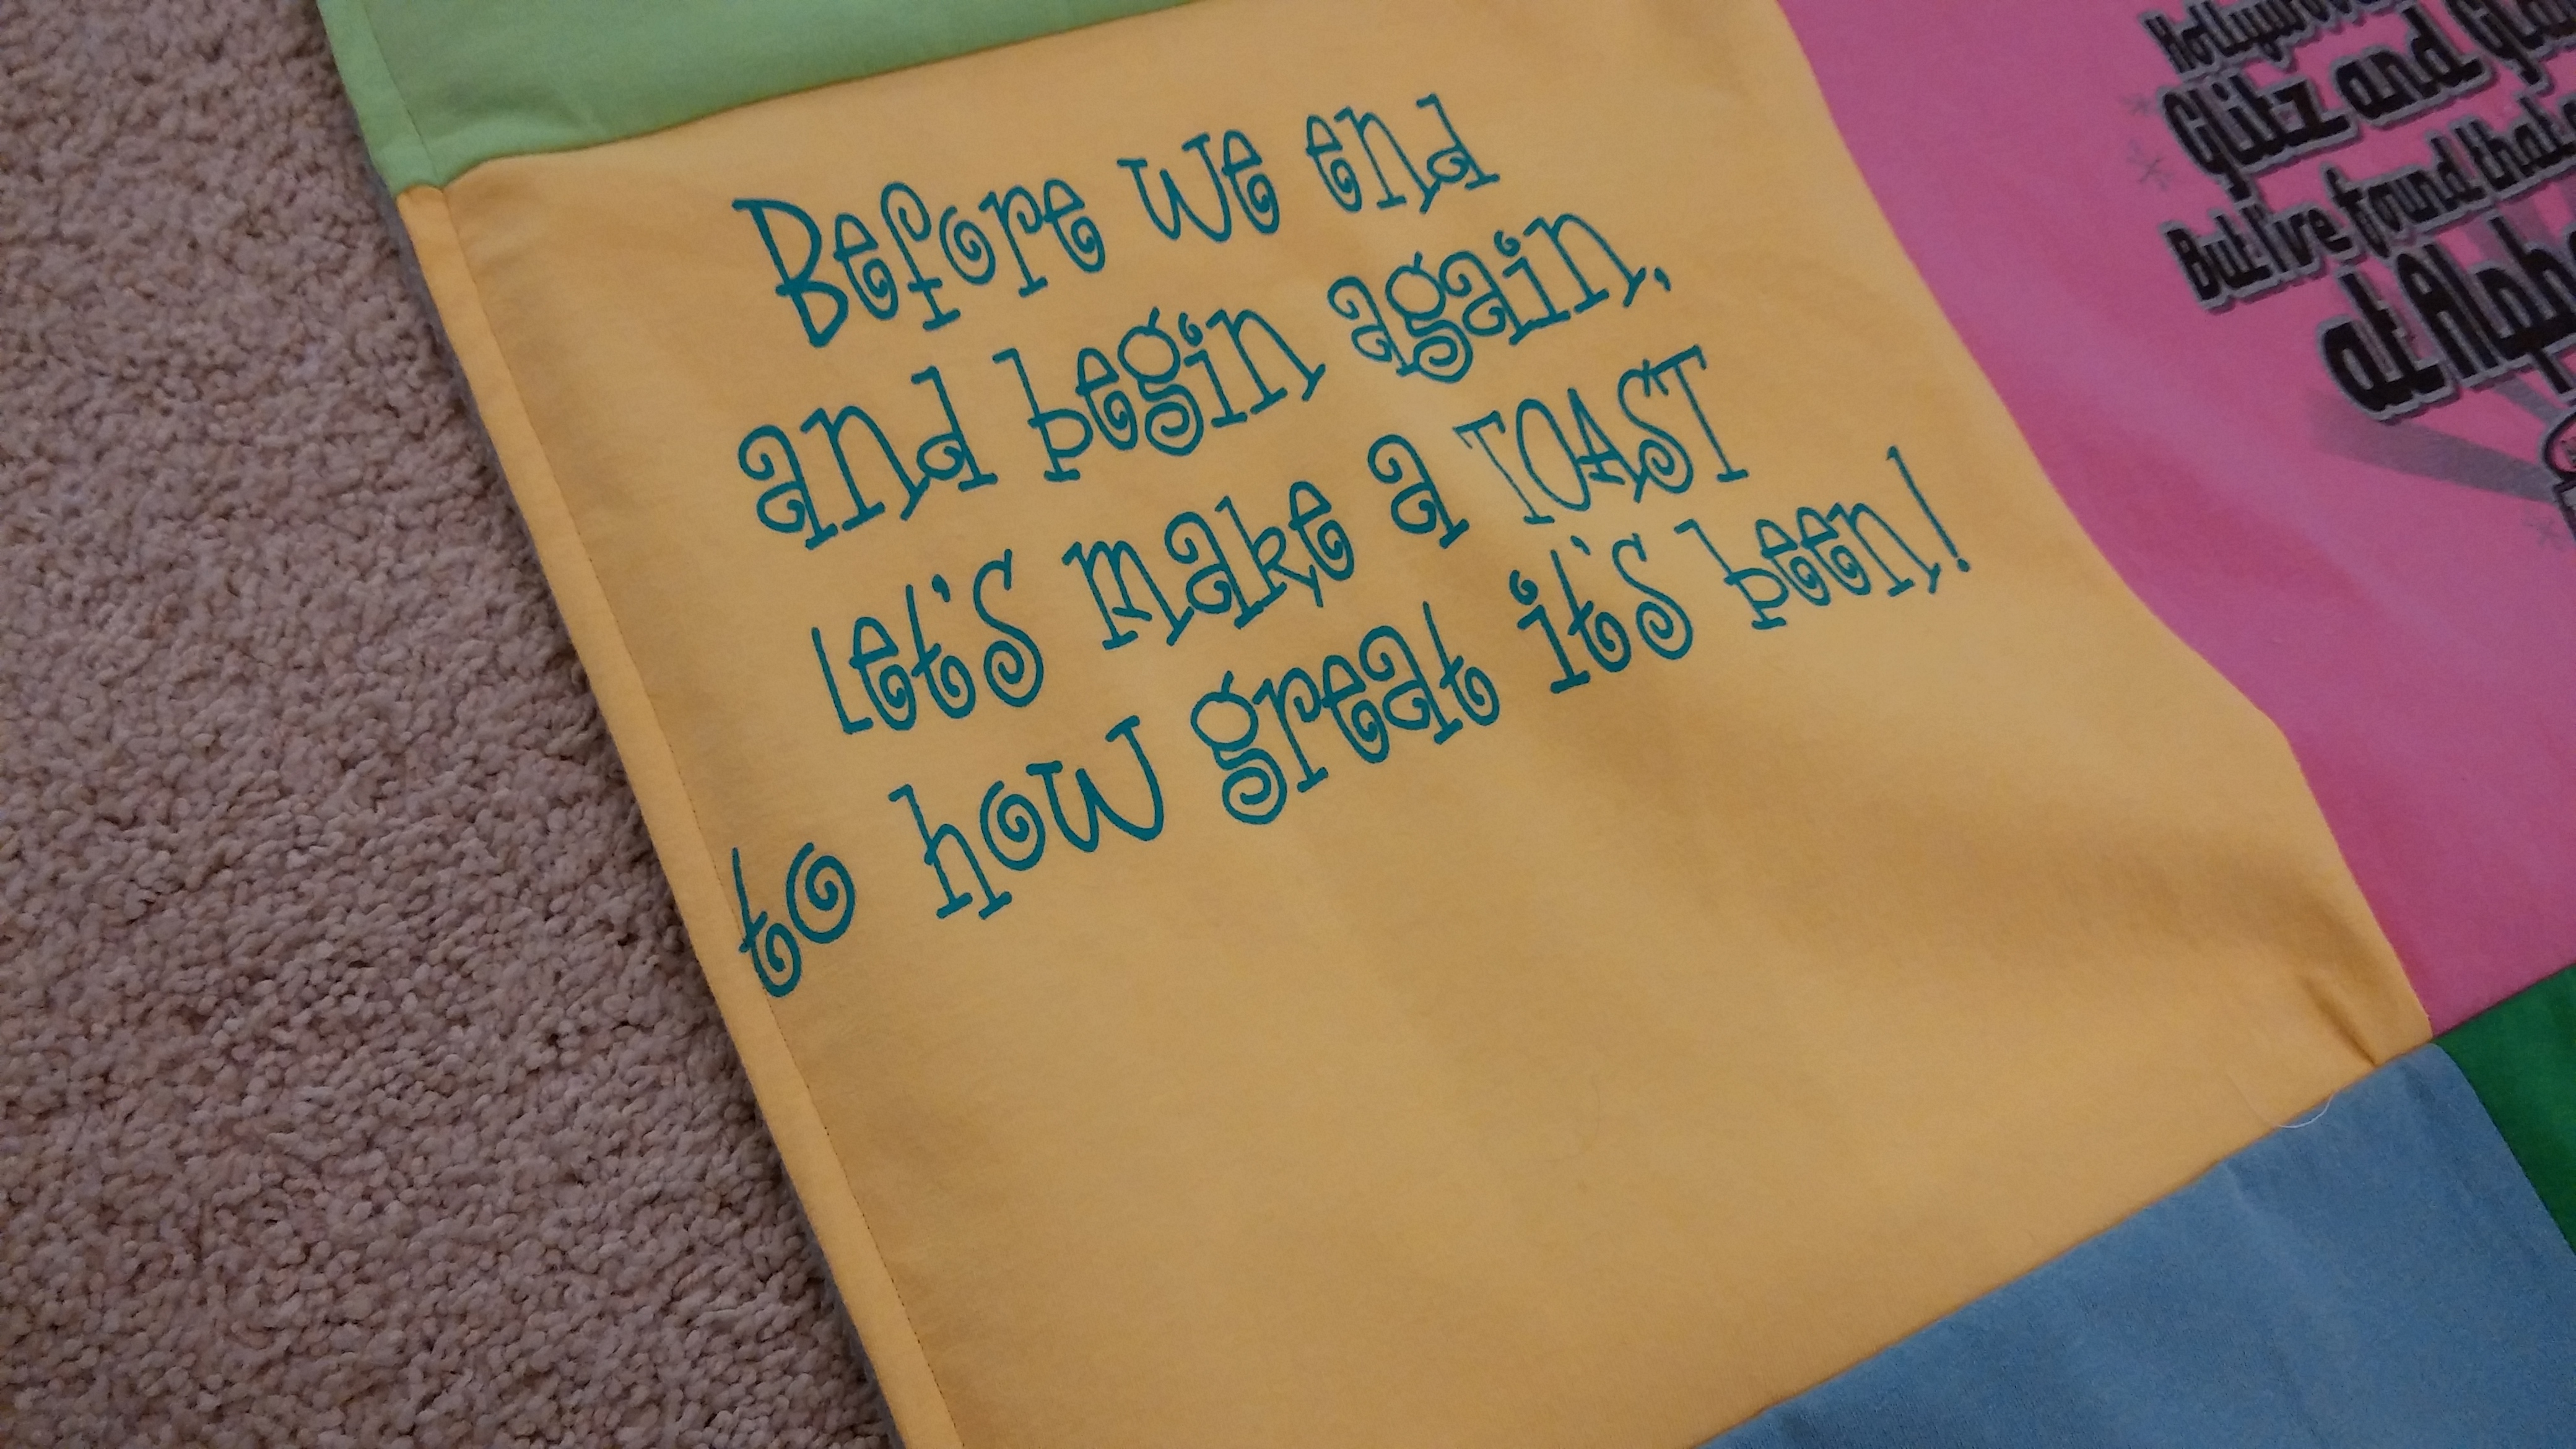 Before we end
and begin again,
Let's make a TOAST
to how great it's been!
Glitz and
But I've found that
at